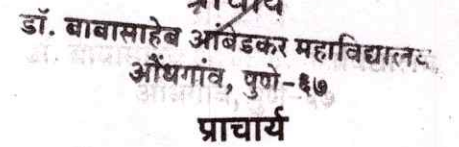 प्राचार्य
डॉ. बाबासाहेब आंबेडकर महाविद्यालय
औंधगांव, पुणे-६७
प्राचार्य